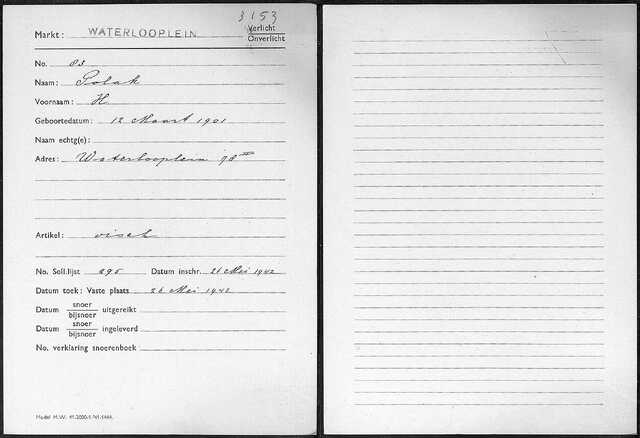 3153
Markt: WATERLOOPLEIN Verlicht
Onverlicht
No. 83
Naam: Polak
Voornaam: H
Geboortedatum: 12 Maart 1901
Naam echtg(e):
Adres: Waterlooplein 98 III
Artikel: visch
No. Soll.lijst 895 Datum inschr. 21 Mei 1942
Datum toek: Vaste plaats 26 Mei 1942
Datum snoer
bijsnoer uitgereikt
Datum snoer
bijsnoer ingeleverd
No. verklaring snoerenboek
Model M.W.